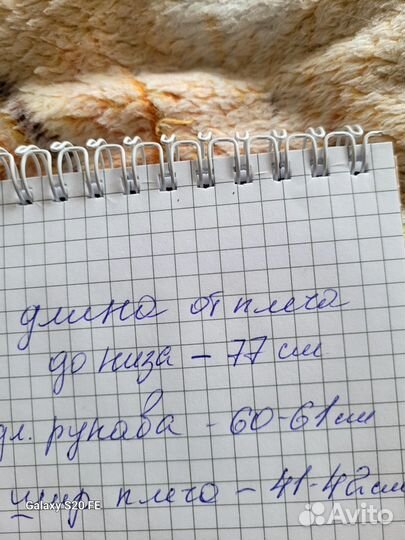 длина от плеча
до низа - 77 см
дл. рукава - 60-61 см
шир плеча - 41-42 см
Galaxy S20 FE
Avito